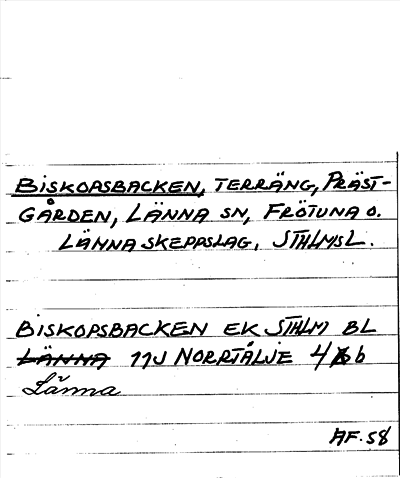 BISKOPSBACKEN, TERRÄNG, PRÄST-
GÅRDEN, LÄNNA SN, FRÖTUNA O.
LÄNNA SKEPPSLAG, STHLMSL.
BISKOPSBACKEN EK STHLM BL
LÄNNA 11J NORRTÄLJE 4 b
Länna
AF. 58